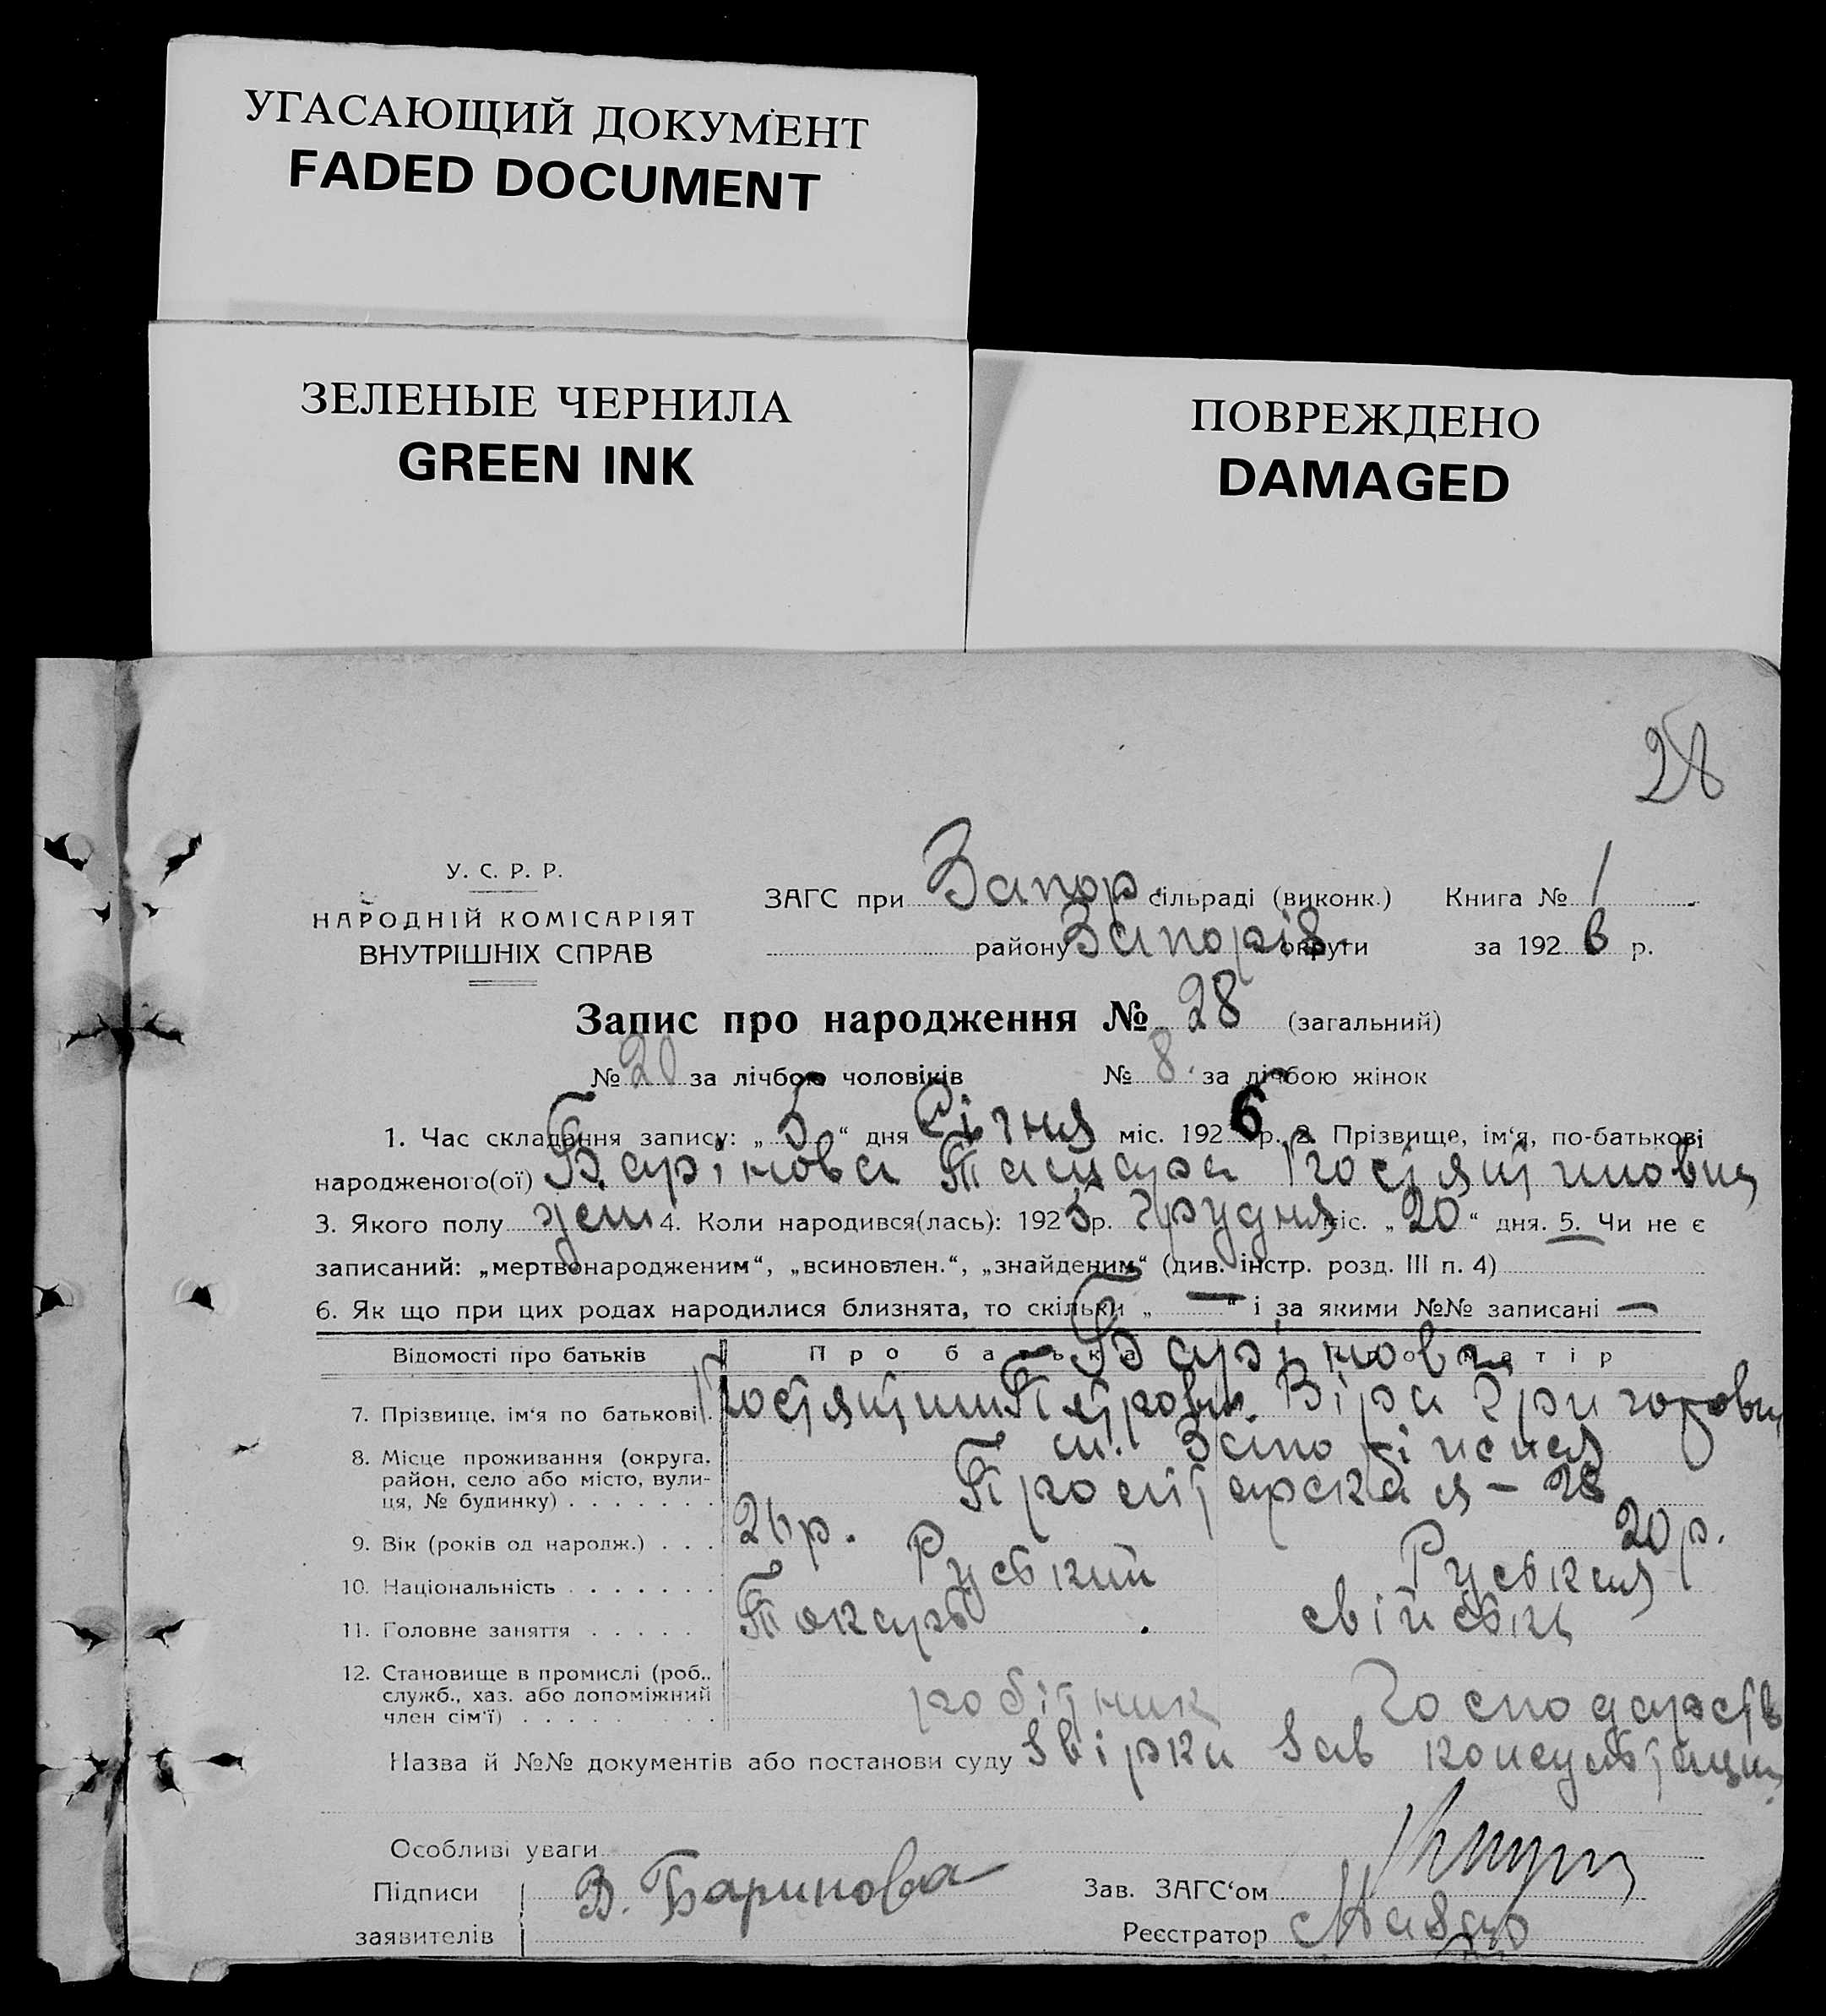 УГАСАЮЩИЙ ДОКУМЕНТ
FADED DOCUMENT
ЗЕЛЕНЫЕ ЧЕРНИЛА
GREEN INK
ПОВРЕЖДЕНО
DAMAGED
28
У. С. Р. Р.
НАРОДНІЙ КОМІСАРІЯТ
ВНУТРІШНІХ СПРАВ
ЗАГС при Запор сільраді (виконк.) Книга № 1
району Запоріз. округи за 192 6 р.
Запис про народження № 28 (загальний)
№ 20 за лічбою чоловіків № 8 за лічбою жінок
1. Час складання запису: „ 5 “ дня Січня міс. 192 6 р. 2. Прізвище, ім‘я, по-батькові
народженого(ої) Барінова Тамара Костянтиновна
3. Якого полу жен 4. Коли народився(лась): 192 5 р. Грудня міс. „ 20 “ дня. 5. Чи не є
записаний: „мертвонародженим“, „всиновлен.“, „знайденим“ (див. інстр. розд. III п. 4)
6. Як що при цих родах народилися близнята, то скільки „ — “ і за якими №№ записані —
Відомості про батьків Про батька Про матір
Барінови
7. Прізвище, ім‘я по батькові Костянтин Петрович Віра Григоровна
8. Місце проживання (округа, район, село або місто, вулиця, № будинку)
м. Запоріжжя
28
9. Вік (років од народж.) 26 р. 20 р.
10. Національність Руський Руська
11. Головне заняття Токарь свійські
12. Становище в промислі (роб., служб., хаз. або допоміжний член сім‘ї) робітник Господарств
Назва й №№ документів або постанови суду звірки зав консультации
Особливі уваги
Підписи заявителів В. Баринова
Зав. ЗАГС‘ом
Реєстратор